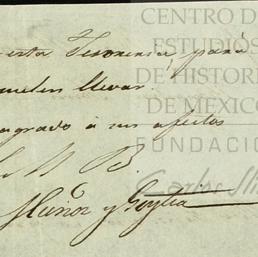 esta Tesorería para
suelen llevar.
agrado á sus efectos
M. B.
Muñoz y Goytia
CENTRO DE
ESTUDIOS
DE HISTORI
DE MÉXICO
FUNDACIÓ
Carlos Sli